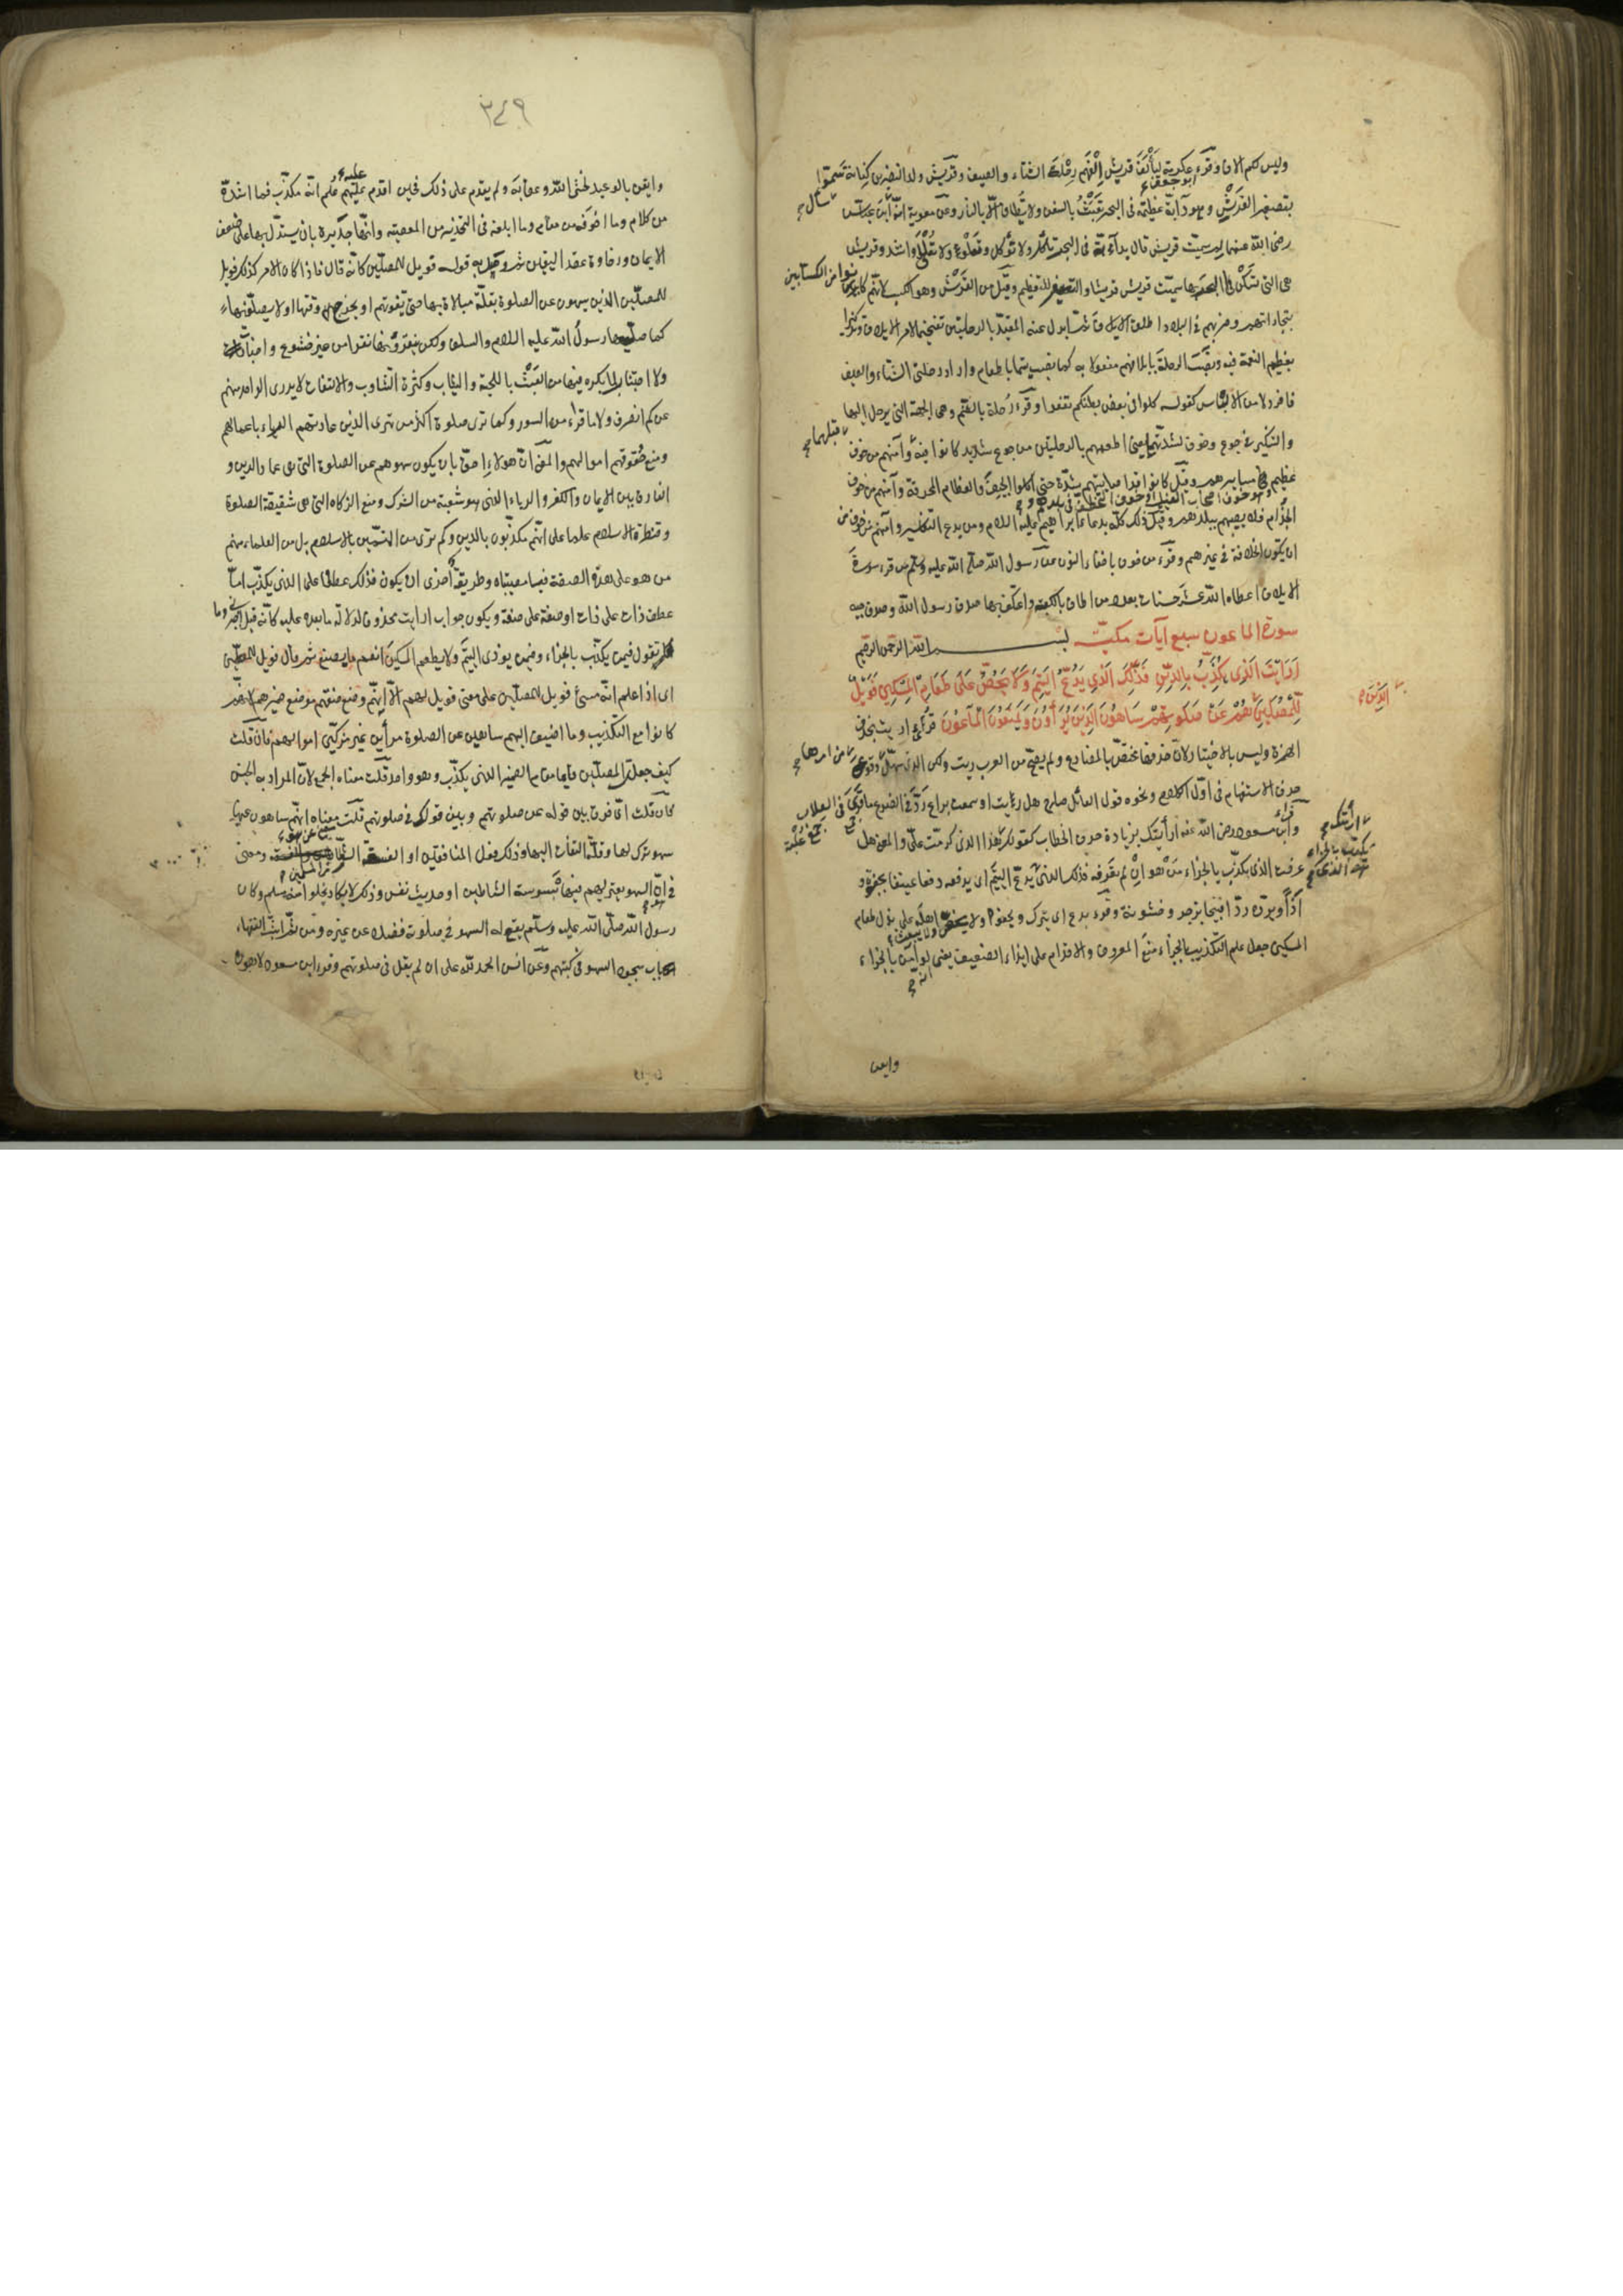 وليس لكم الاف وقرء عكرمة ليألف قريش إلفهم رحلة الشتاء والصيف وقريش ولد النضر بن كنانة سموا
بتصغير القرش وهو دابة عظيمة في البحر تعبث بالسفن ولا تطاق الا بالنار وعن معوية انه سأل ابن عباس
رضي الله عنهما لم سميت قريش قال بدابة في البحر تأكل ولا تؤكل وتعلو ولا تعلى وانشد وقريش
هي التي تسكن البحر بها سميت قريش قريشا والتصغير للتعظيم وقيل من القرش وهو الكسب لانهم كانوا كسابين
بتجاراتهم وضربهم في البلاد اطلق الايلاف ثم ابدل عنه المقيد بالرحلتين تفخيما لامر الايلاف وتذكيرا
بعظيم النعمة فيه ونصب الرحلة بايلافهم مفعولا به كما نصب يتيما باطعام واراد رحلتي الشتاء والصيف
فافرد لامن الالباس كقوله كلوا في بعض بطنكم تعفوا وقرء رحلة بالضم وهي الجهة التي يرحل اليها
والتنكير في جوع وخوف لشدتهما يعني اطعمهم بالرحلتين من جوع شديد كانوا فيه قبلهما وآمنهم من خوف
عظيم وهو خوف اصحاب الفيل او خوف التخطف في بلدهم ومسايرهم وقيل كانوا قد اصابتهم شدة حتى اكلوا الجيف والعظام المحرقة وآمنهم من خوف
الجذام فلا يصيبهم ببلدهم وقيل ذلك كله بدعاء ابراهيم عليه السلام ومن بدع التفاسير وآمنهم من خوف من
ان يكون الخلافة في غيرهم وقرء من خوف باخفاء النون عن رسول الله صلى الله عليه وسلم من قرء سورة
الايلاف اعطاه الله عشر حسنات بعدد من طاف بالكعبة واعتكف بها صدق رسول الله وصدق حبيبه
سورة الماعون سبع آيات مكية بسم الله الرحمن الرحيم
ارايت الذي يكذب بالدين فذلك الذي يدع اليتيم ولا يحض على طعام المسكين فويل
للمصلين الذين هم عن صلوتهم ساهون الذين هم يرآؤن ويمنعون الماعون قرئ اريت بحذف
الهمزة وليس بالاختيار لان حذفها مختص بالمضارع ولم يصح من العرب ريت ولكن الذي سهل من امرها وقوع
حرف الاستفهام في اول الكلام ونحوه قول القائل صاح هل رايت او سمعت براع رد في الضرع ما قرى في العلاب
وقراء ابن مسعود رضي الله عنه ارأيتك بزيادة حرف الخطاب كقولك ارأيتك هذا الذي كرمت علي والمعنى هل
عرفت الذي يكذب بالجزاء من هو ان لم تعرفه فذلك الذي يكذب بالجزاء هو الذي يدع اليتيم اى يدفعه دفعا عنيفا بجفوة و
اذًا ويرده ردا قبيحا بزجر وخشونة وقرء يدع اى يترك ويجفو ولا يحض ولا يبعث اهله على بذل طعام
المسكين جعل علم التكذيب بالجزاء منع المعروف والاقدام على ايذاء الضعيف يعني انه لو آمن بالجزاء
وايقن
٣٤٩
وايقن بالوعيد لخشي الله وعقابه ولم يقدم على ذلك فحين اقدم عليه علم انه مكذب فما اشده
من كلام وما اخوفه من مقام وما ابلغه في التحذير من المعصية وانها جديرة بان يستدل بها على ضعف
الايمان ورخاوة عقد اليقين ثم وصل به قوله فويل للمصلين كانه قال فاذا كان الامر كذلك فويل
للمصلين الذين يسهون عن الصلوة بقلة مبالاة بها حتى تفوتهم او يخرج وقتها او لا يصلونها
كما صليها رسول الله عليه السلام والسلف ولكن ينقرونها نقرا من غير خشوع واخبات
ولا اجتناب لما يكره فيها من العبث باللحية والثياب وكثرة التثاوب والالتفات لا يدري الواحد منهم
عن كم انصرف ولا ما قراء من السور وكما ترى صلوة اكثر من ترى الذين عادتهم الرياء باعمالهم
ومنع حقوقهم اموالهم والمعنى ان هولاء احق بان يكون سهوهم عن الصلوة التي هي عماد الدين و
الفارق بين الايمان والكفر والرياء الذي هو شعبة من الشرك ومنع الزكاه التي هي شقيقة الصلوة
وقنطرة الاسلام علما على انهم مكذبون بالدين وكم ترى من المتسمين بالاسلام بل من العلماء منهم
من هو على هذه الصفة فيا مصيبتاه وطريقة اخرى ان يكون فذلك عطفا على الذي يكذب اما
عطف ذات على ذات او صفة على صفة ويكون جواب ارايت محذوفا لدلالة ما بعده عليه كانه قيل اخبرني وما
تقول فيمن يكذب بالجزاء وفيمن يوذي اليتيم ولا يطعم المسكين انعم ما يصنع ثم قال فويل للمصلين
اى اذا علم انه مسئ فويل للمصلين على معنى فويل لهم الا انه وضع صفتهم موضع ضميرهم لانهم
كانوا مع التكذيب وما اضيف اليهم ساهين عن الصلوة مرأين غير مزكين اموالهم فان قلت
كيف جعلت المصلين قايما مقام الضمير الذي يكذب وهو واحد قلت معناه الجمع لان المراد به الجنس
فان قلت اى فرق بين قوله عن صلوتهم وبين قولك في صلوتهم قلت معنى عن انهم ساهون عنها
سهو ترك لها وقلة التفات اليها وذلك فعل المنافقين او الفسقة الشطار من المسلمين ومعنى
في ان السهو يعتريهم فيها بوسوسة الشيطان او حديث نفس وذلك لا يكاد يخلو منه مسلم وكان
رسول الله صلى الله عليه وسلم يقع له السهو في صلوته فضلا عن غيره ومن ثم اثبت الفقهاء
باب سجود السهو في كتبهم وعن انس الحمد لله على ان لم يقل في صلوتهم وقرء ابن مسعود لاهون